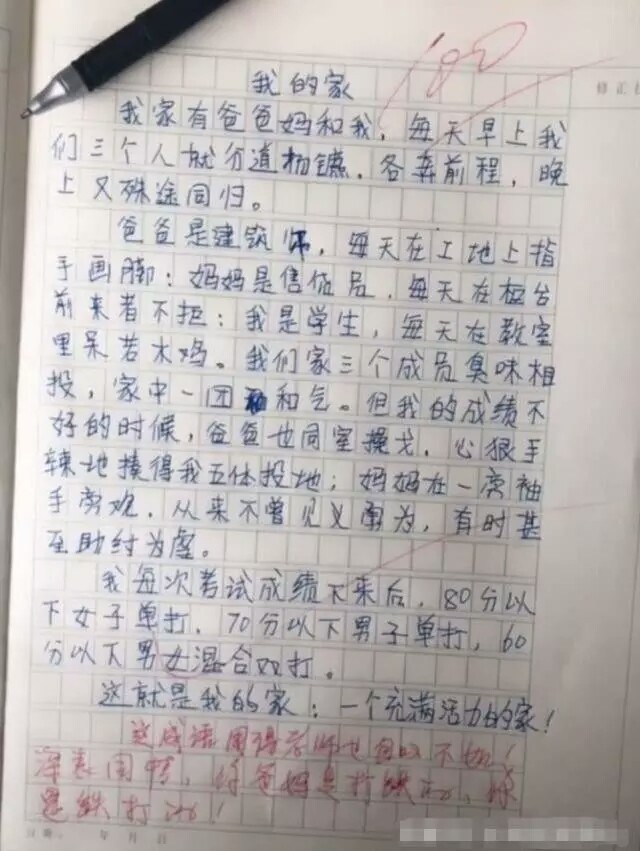 100
我的家
修正
我家有爸爸妈和我，每天早上我
们三个人就分道扬镳，各奔前程，晚
上又殊途同归。
爸爸是建筑师，每天在工地上指
手画脚；妈妈是售货员，每天在柜台
前来者不拒；我是学生，每天在教室
里呆若木鸡。我们家三个成员臭味相
投，家中一团和气。但我的成绩不
好的时候，爸爸也同室操戈，心狠手
辣地揍得我五体投地；妈妈在一旁袖
手旁观，从来不曾见义勇为，有时甚
至助纣为虐。
我每次考试成绩下来后，80分以
下女子单打，70分以下男子单打，60
分以下男女混合双打。
这就是我的家：一个充满活力的家！
这成语用得老师也自叹不如！
深表同情，你爸妈是打铁的，你
是铁打的！
年 月 日